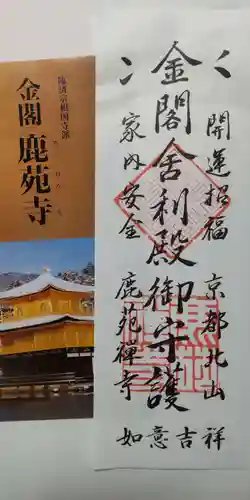 開運招福 京都北山
金閣舎利殿御守護
家内安全 鹿苑禪寺
如意吉祥
臨済宗相国寺派
金閣 鹿苑寺